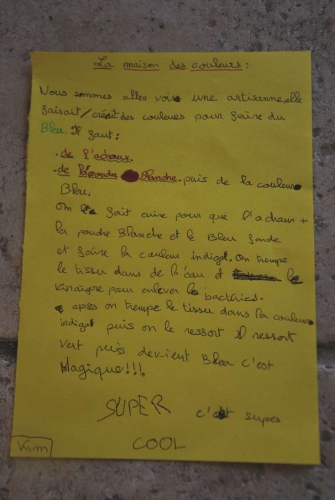 La maison des couleurs :
Nous sommes alles voir une artisanne elle
faisait/créeit des couleurs pour faire du
Bleu. Il faut :
. de l'achaux
. de la poudre Blanche. puis de la couleur
Bleu.
On le fait cuire pour que l'achaux +
la poudre Blanche et le Bleu fonde
et faire la couleur indigot. On trempe
le tissu dans de l'eau et le
vinaigre pour enlever les bactéries.
après on trempe le tissu dans la couleur
indigot puis on le ressort Il ressort
vert puis devient Bleu C'est
Magique!!!
SUPER c'est super
COOL
Kim